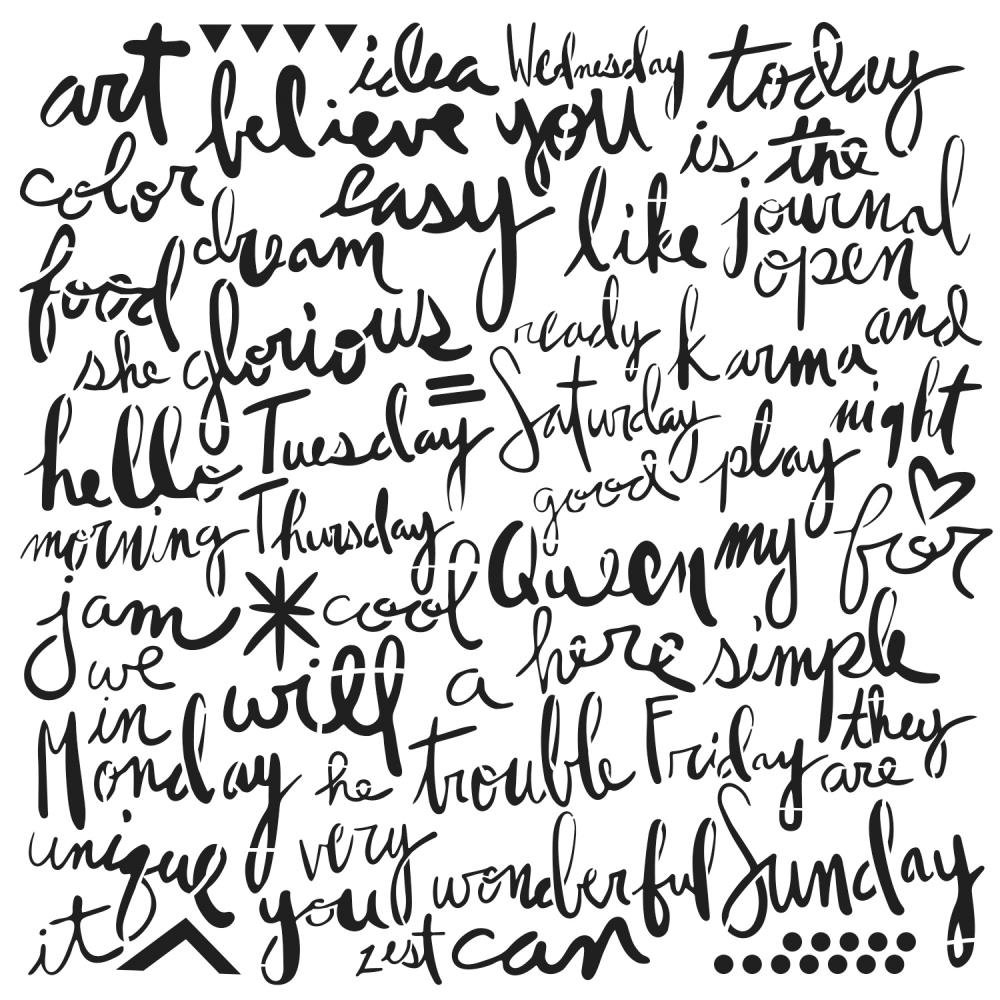 art idea Wednesday today
believe you is the
color easy like journal
food dream open
glorious ready karma and
she Tuesday Saturday night
hello good play
morning Thursday Queen my for
jam cool here simple
we will a
in Monday he trouble Friday they
are
unique very wonderful Sunday
it you zest can